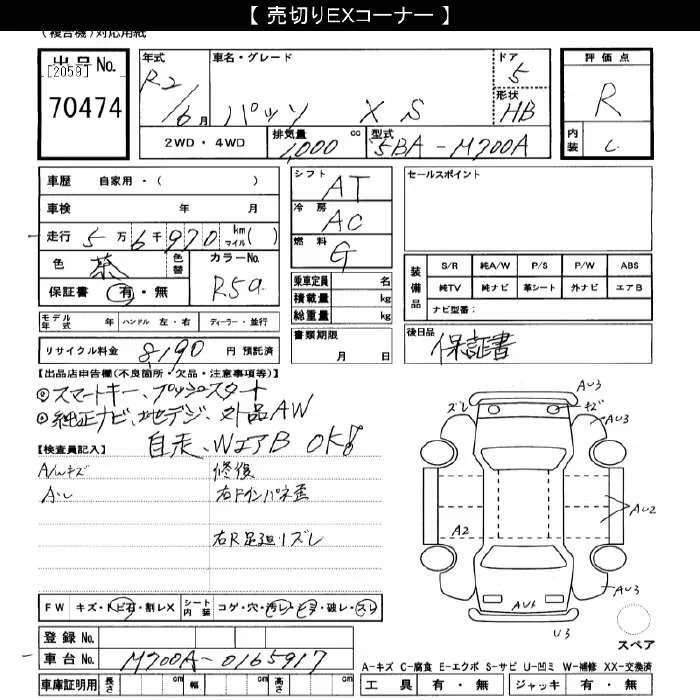 【 売切りEXコーナー 】
(複合機)対応用紙
出品No.
[2059]
70474
年式
R2/6月
車名・グレード
パッソ XS
ドア
5
形状
HB
評価点
R
内装
C
2WD・4WD
排気量
1,000 cc
型式
5BA-M700A
車歴 自家用・( )
車検 年 月
走行 5万6千970 km マイル( )
色 茶 色替
カラーNo.
R59
保証書 有・無
モデル年式 年 ハンドル 左・右 ディーラー・並行
リサイクル料金 8,190 円 預託済
シフト AT
冷房 AC
燃料 G
乗車定員 名
積載量 kg
総重量 kg
書類期限
月 日
セールスポイント
装備品
S/R 純A/W P/S P/W ABS
純TV 純ナビ 革シート 外ナビ エアB
ナビ型番:
後日品
保証書
【出品店申告欄(不良箇所・欠品・注意事項等)】
◎スマートキー、プッシュスタート
◎純正ナビ、地デジ、外品AW
自走、WエアB OK!
【検査員記入】
A/Wキズ
修復
右Fインパネ歪
右R足廻リズレ
FW キズ・トビ石・割レX シート内装 コゲ・穴・汚レ・ヒヨ・破レ・スレ
登録No.
車台No. M700A-0165917
車庫証明用 長さ cm 幅 cm 高さ cm
AU3
ズレ
キズ
AU3
AU2
A2
AU3
AU1
U3
スペア
A-キズ C-腐食 E-エクボ S-サビ U-凹ミ W-補修 XX-交換済
工具 有・無 ジャッキ 有・無